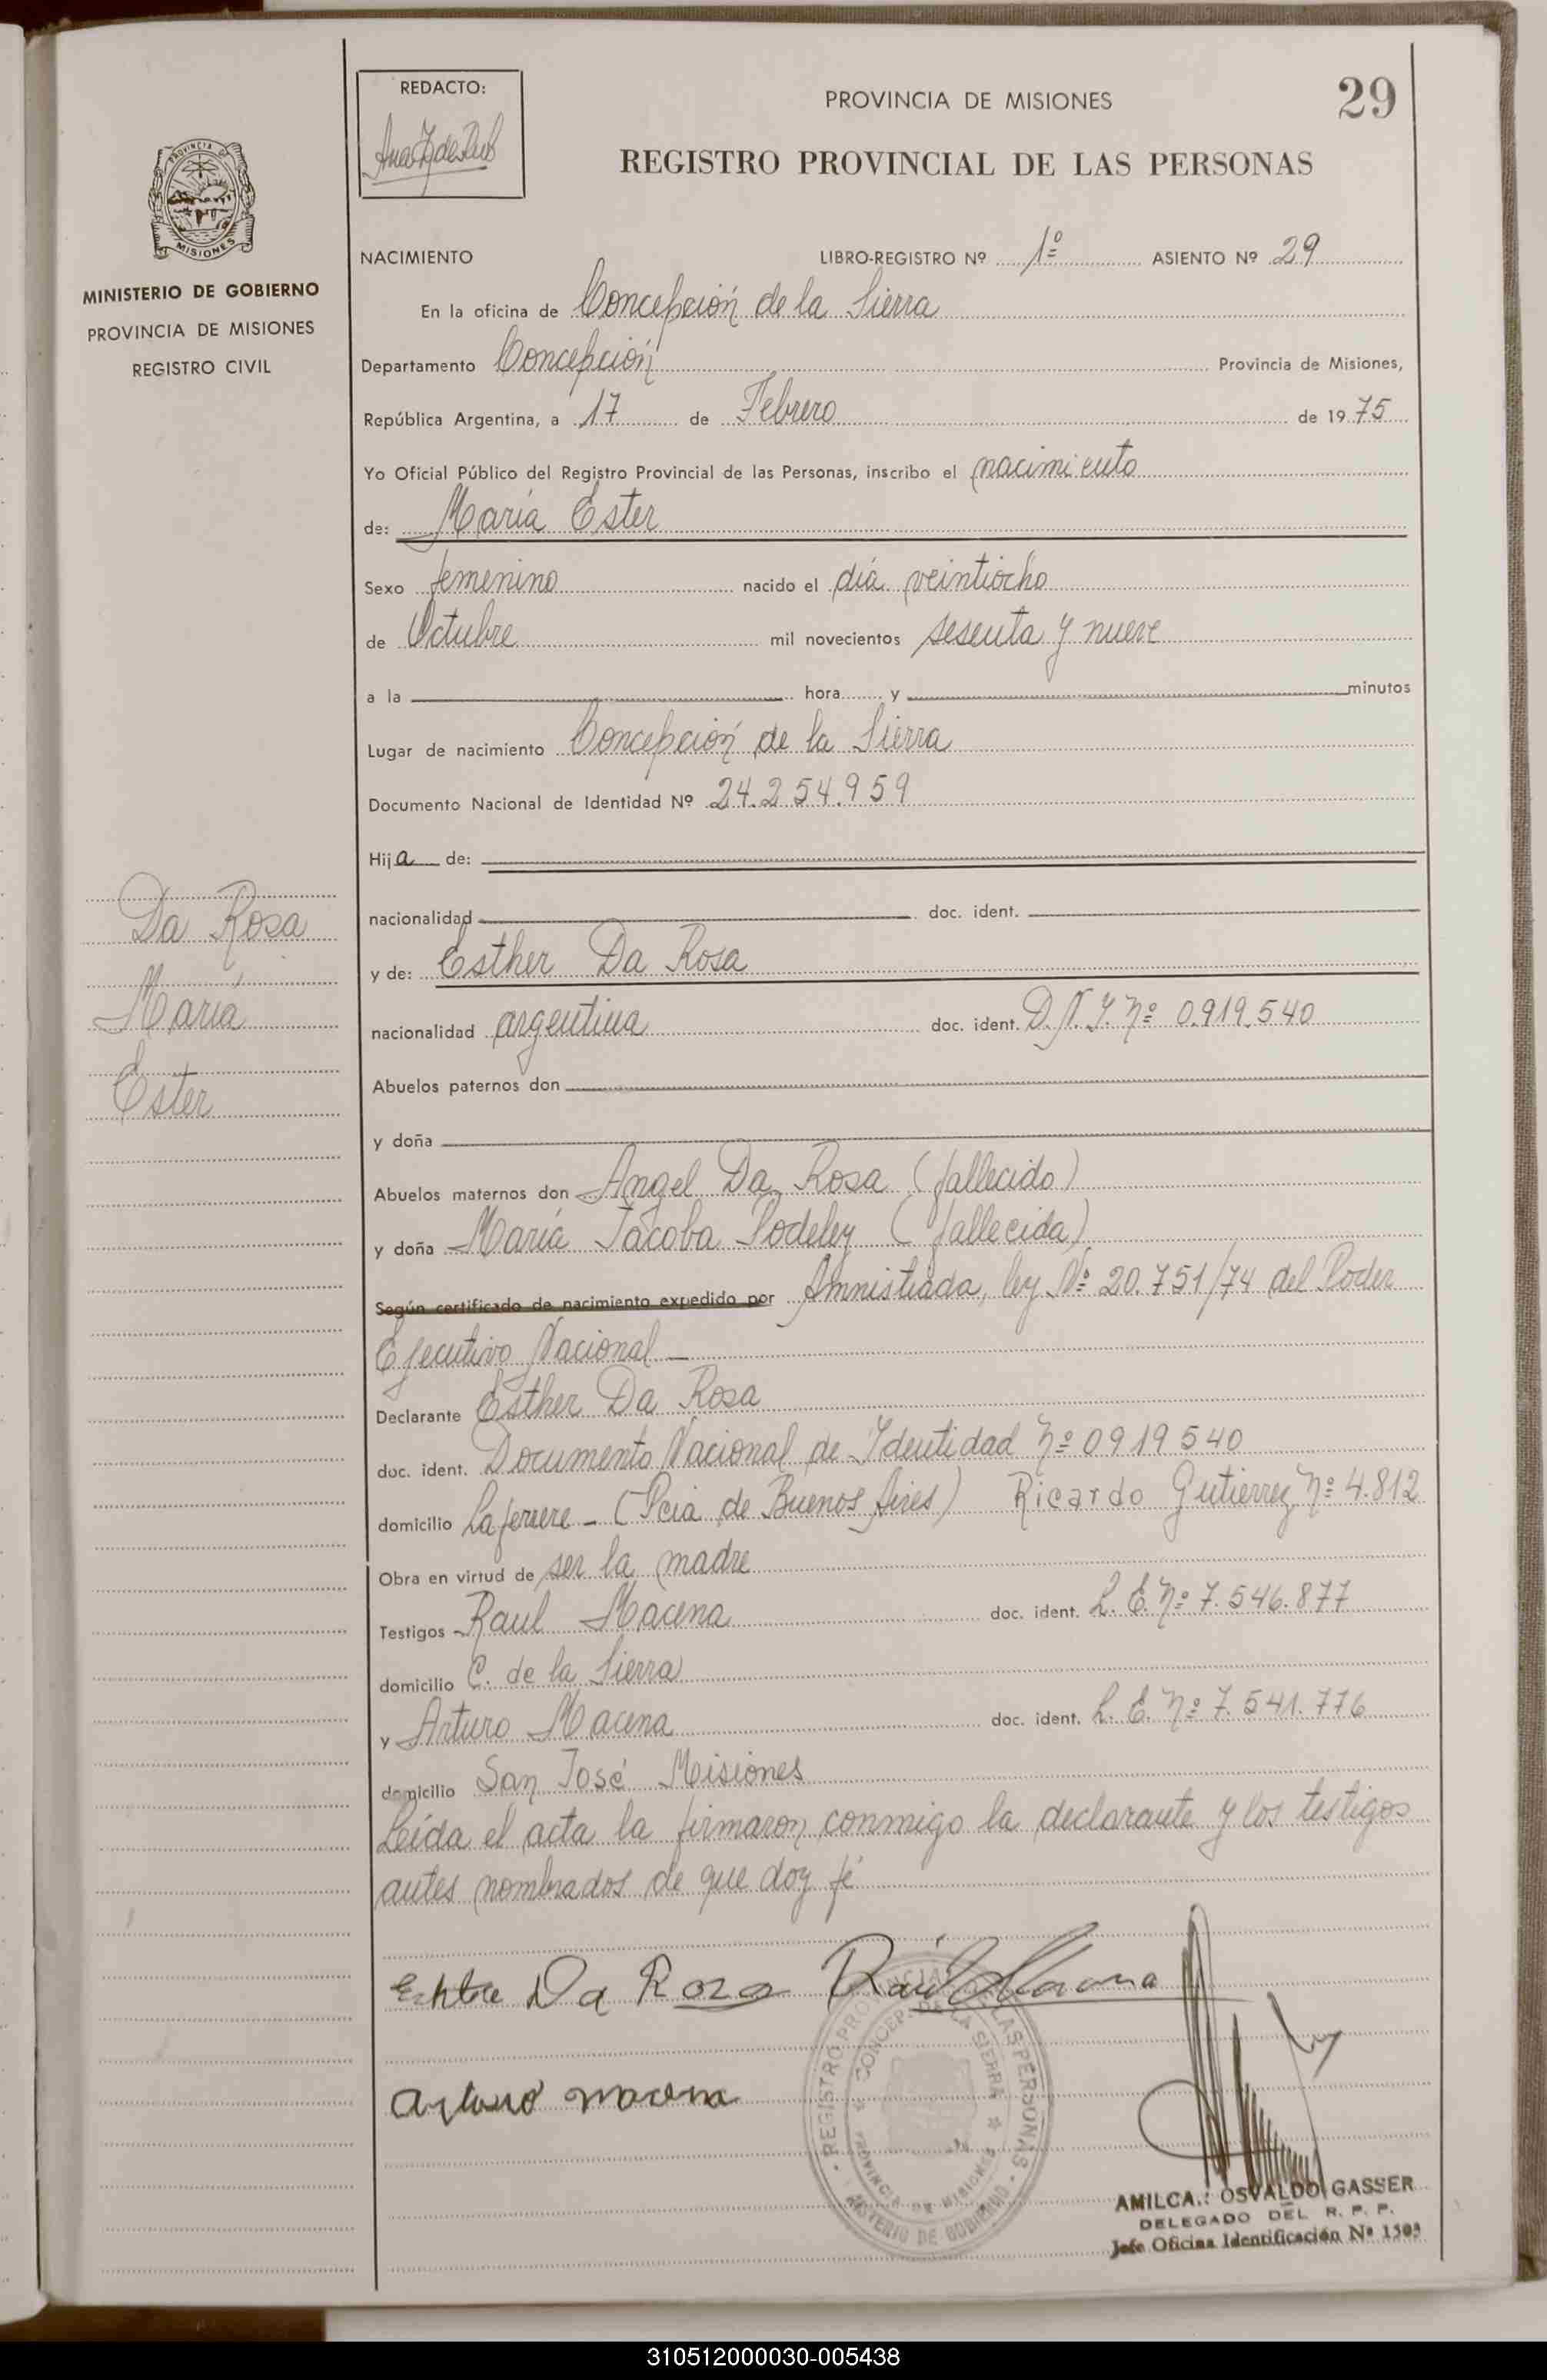 29
REDACTO:
PROVINCIA DE MISIONES
REGISTRO PROVINCIAL DE LAS PERSONAS
PROVINCIA
MISIONES
MINISTERIO DE GOBIERNO
PROVINCIA DE MISIONES
REGISTRO CIVIL
NACIMIENTO LIBRO-REGISTRO Nº 1º ASIENTO Nº 29
En la oficina de Concepción de la Sierra
Departamento Concepción Provincia de Misiones,
República Argentina, a 17 de Febrero de 1975
Yo Oficial Público del Registro Provincial de las Personas, inscribo el nacimiento
de: María Ester
Sexo femenino nacido el día veintiocho
de Octubre mil novecientos sesenta y nueve
a la hora y minutos
Lugar de nacimiento Concepción de la Sierra
Documento Nacional de Identidad Nº 24.254.959
Hija de:
Da Rosa
María
Ester
nacionalidad doc. ident.
y de: Esther Da Rosa
nacionalidad argentina doc. ident. D.N.I. Nº 0.919.540
Abuelos paternos don
y doña
Abuelos maternos don Angel Da Rosa (fallecido)
y doña María Jacoba Podeley (fallecida)
Según certificado de nacimiento expedido por Amnistiada, ley Nº 20.751/74 del Poder
Ejecutivo Nacional
Declarante Esther Da Rosa
doc. ident. Documento Nacional de Identidad Nº 0919540
domicilio Laferrere - (Pcia de Buenos Aires) Ricardo Gutierrez Nº 4.812
Obra en virtud de ser la madre
Testigos Raul Macena doc. ident. L.E. Nº 7.546.877
domicilio C. de la Sierra
y Arturo Macena doc. ident. L.E. Nº 7.541.776
domicilio San José Misiones
Leída el acta la firmaron conmigo la declarante y los testigos
antes nombrados de que doy fé
Da Rosa Raúl Macena
Arturo Macena
REGISTRO PROVINCIAL DE LAS PERSONAS
CONCEP. DE LA SIERRA
PROVINCIA DE MISIONES
MINISTERIO DE GOBIERNO
AMILCA.: OSVALDO GASSER
DELEGADO DEL R. P. P.
Jefe Oficina Identificación Nº 1503
310512000030-005438